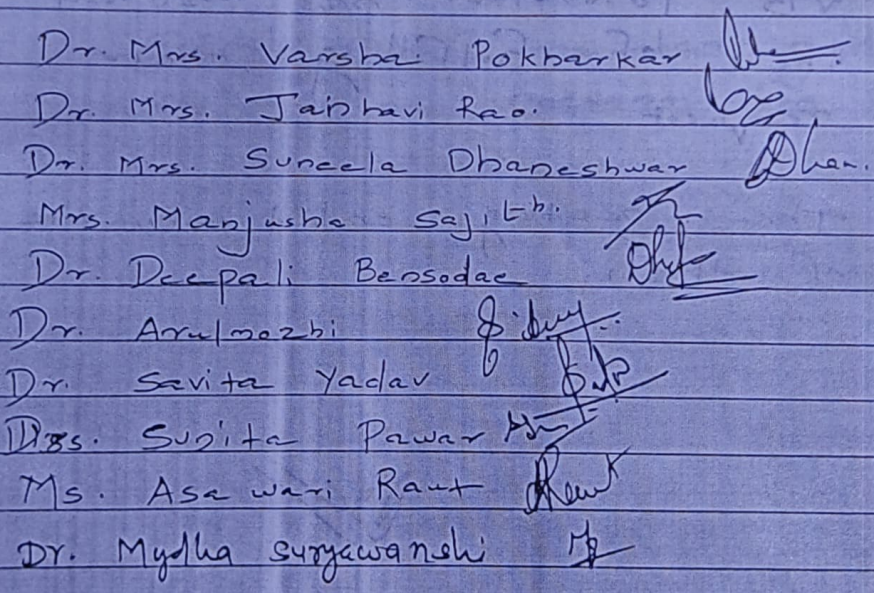 Dr. Mrs. Varsha Pokharkar
Dr. Mrs. Janhavi Rao.
Dr. Mrs. Suneela Dhaneshwar Dhan.
Mrs. Manjusha Sajith.
Dr. Deepali Bensodae
Dr. Arulmozhi
Dr. Savita Yadav
Sunita Pawar
Ms. Asawari Raut Raut
Dr. Mydha Suryawanshi